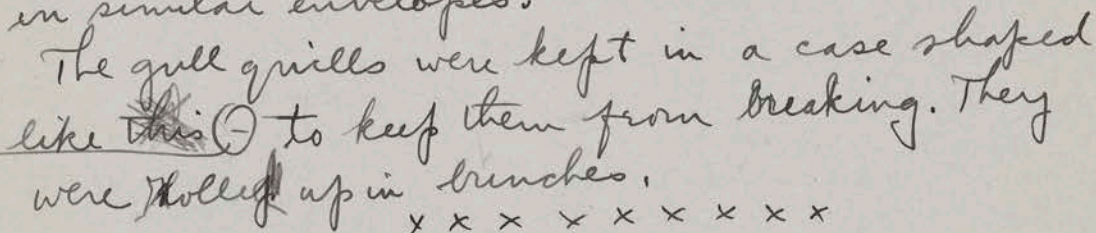 in similar envelopes.
The gull quills were kept in a case shaped
like this ⊖ to keep them from breaking. They
were rolled up in bunches.
x x x x x x x x x